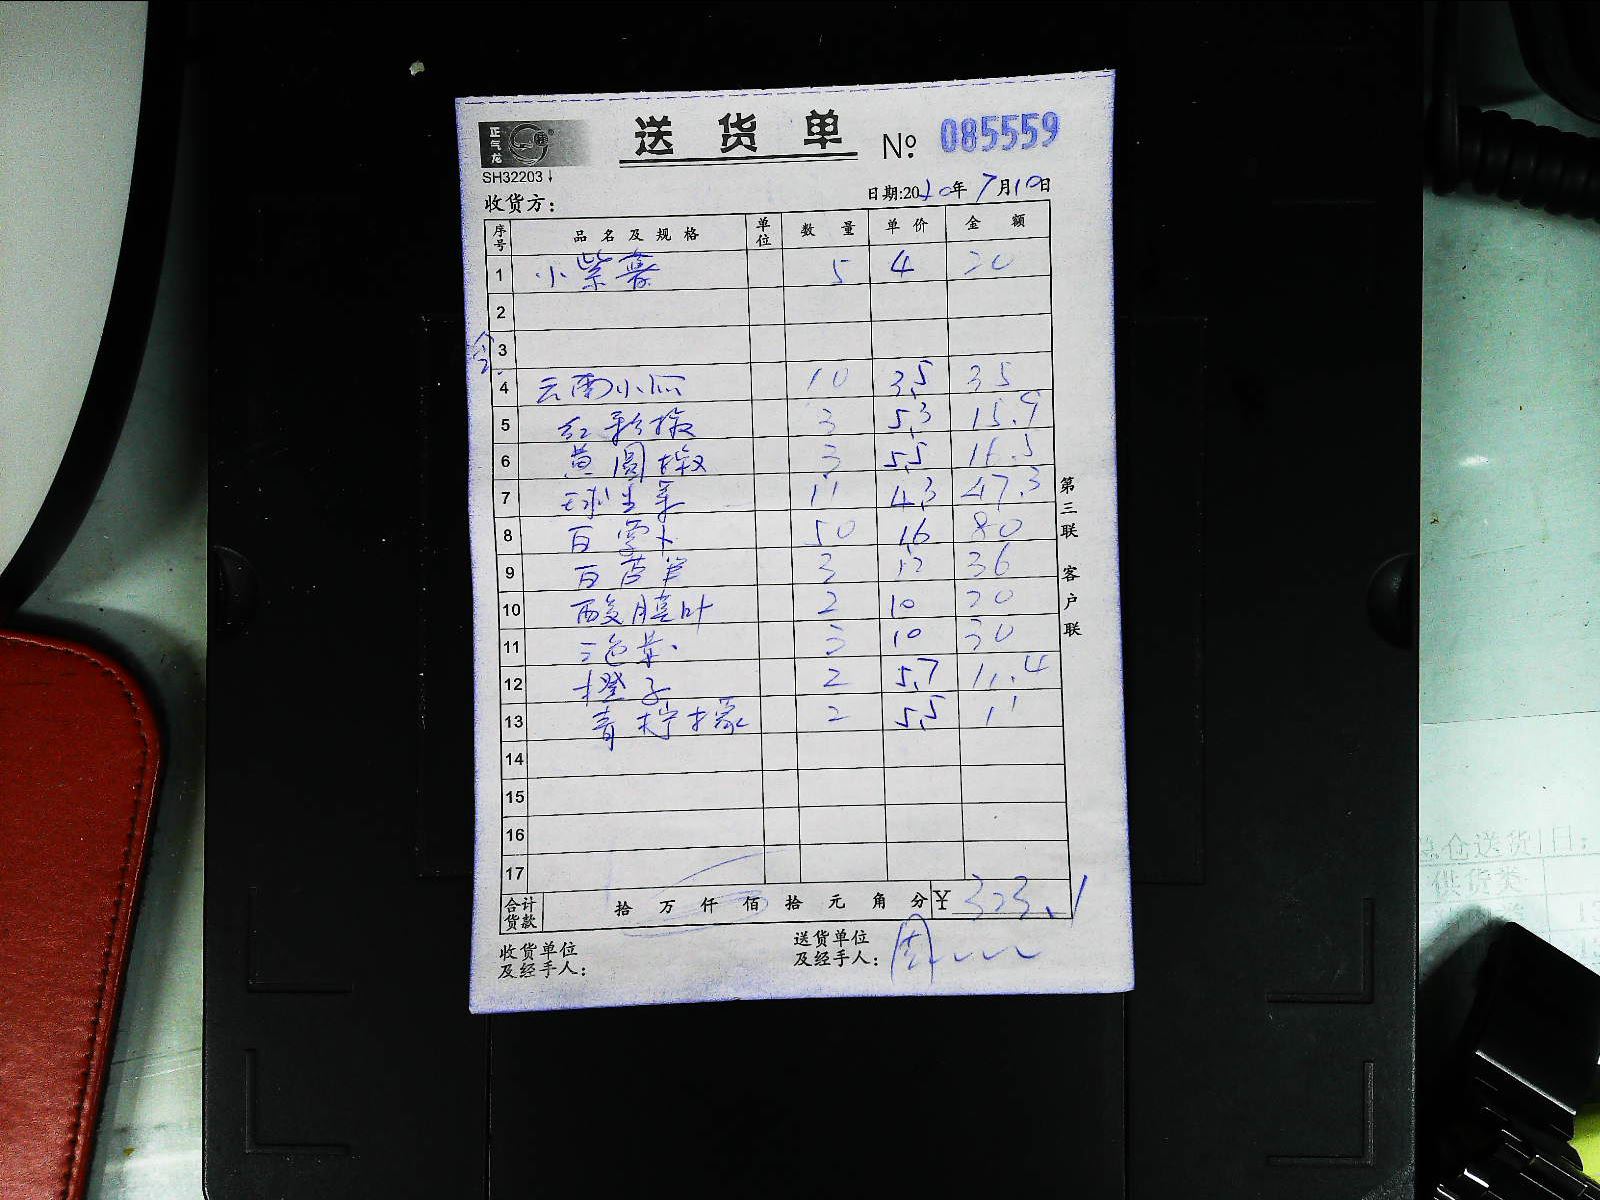 正气龙
送货单 № 085559
SH32203
收货方： 日期:2020年7月10日
序号 品名及规格 单位 数量 单价 金额
1 小紫薯 5 4 20
2
3
4 云南小瓜 10 3.5 35
5 红彩椒 3 5.3 15.9
6 黄圆椒 3 5.5 16.5
7 球生菜 11 4.3 47.3
8 白萝卜 50 1.6 80
9 百芦笋 3 12 36
10 酸膜叶 2 10 20
11 三色菜 3 10 30
12 橙子 2 5.7 11.4
13 青柠檬 2 5.5 11
14
15
16
17
合计货款 拾 万 仟 佰 拾 元 角 分 ¥ 323.1
收货单位及经手人： 送货单位及经手人：
第三联 客户联
总仓送货日:
供货类